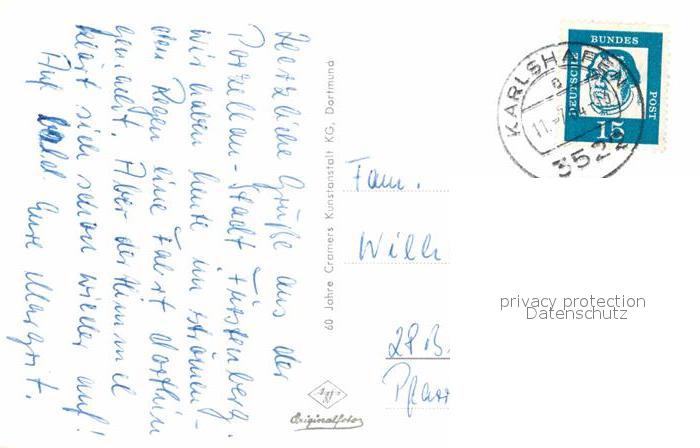 Herzliche Grüße aus der
Porzellan-Stadt Fürstenberg.
Wir haben heute im strömen-
den Regen eine Fahrt dorthin
gemacht. Aber der Himmel
klärt sich schon wieder auf!
Auf bald Eure Margrit.
60 Jahre Cramers Kunstanstalt KG, Dortmund
DEUTSCHE BUNDES POST
15
KARLSHAFEN
a
11.
352
Fam.
Willi
28 B.
Pfarr
privacy protection
Datenschutz
Agfa
Originalfoto